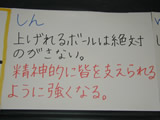 しん
上げれるボールは絶対
のがさない。
精神的に皆を支えられる
ように強くなる。